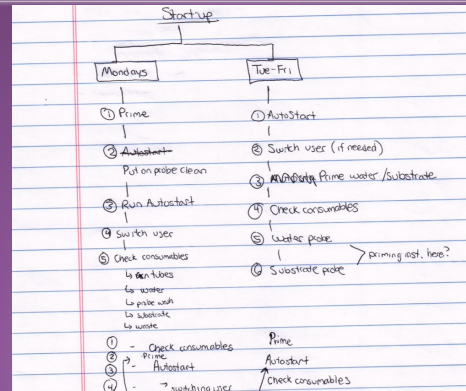 Startup
Mondays
① Prime
② Autostart
Put on probe clean
③ Run Autostart
④ Switch user
⑤ Check consumables
↳ rxn tubes
↳ water
↳ probe wash
↳ substrate
↳ waste
Tue-Fri
① AutoStart
② Switch user (if needed)
③ Prime water/substrate
④ Check consumables
⑤ Water probe
⑥ Substrate probe
priming inst. here?
① - Check consumables
② Prime
③ - Autostart
④ - switching user
Prime
Autostart
Check consumables